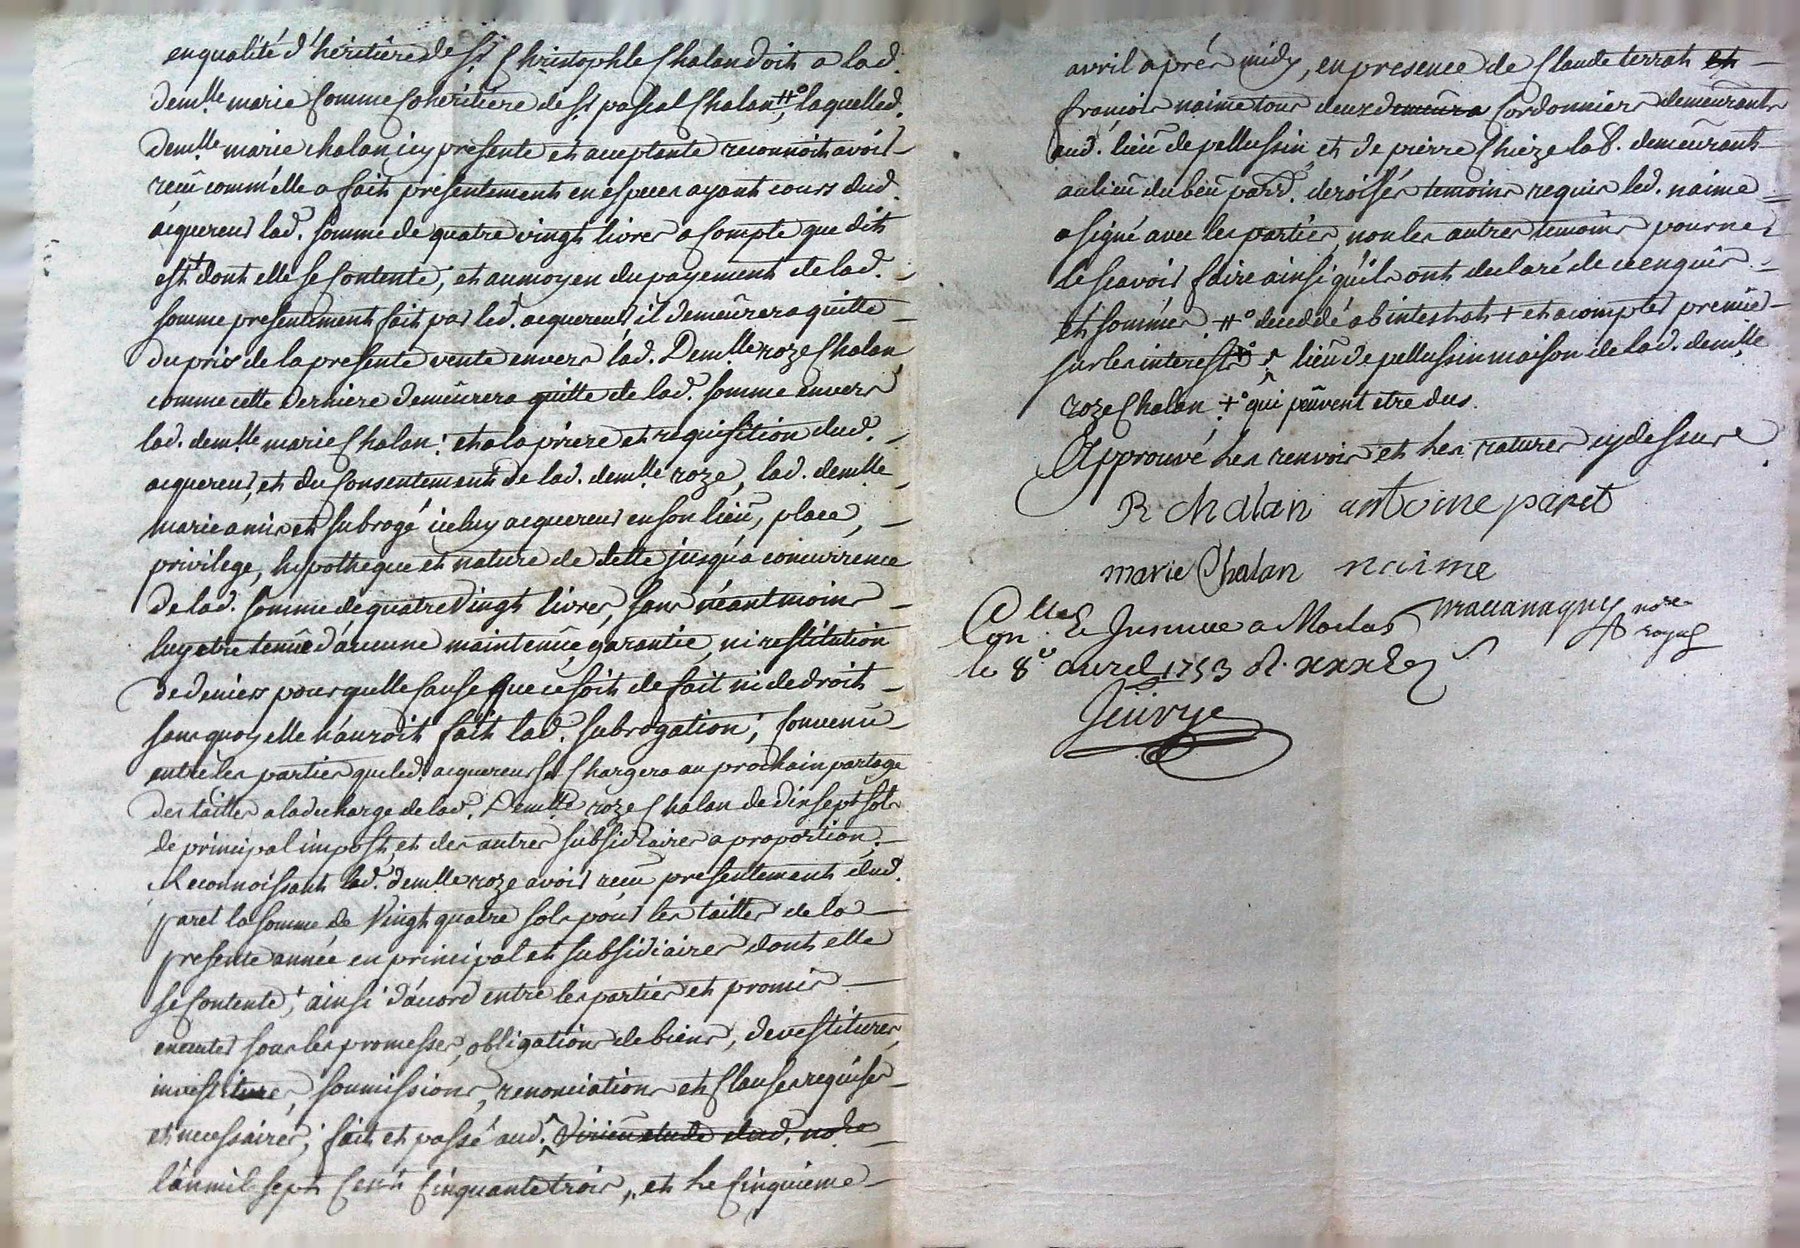 en qualité d'héritière de Sr Christophle Chalan doit a lad.
demlle marie comme cohéritière de Sr pascal Chalan #°, laquelle d.
demlle marie chalan icy présente et acceptante reconnoit avoir
reçû comm'elle a fait présentement en especes ayant cours dud.
acquereur lad. somme de quatre vingt livres a compte que dit
est + dont elle se contente, et au moyen du payement de lad.
somme presentement fait par led. acquereur il demeûrera quitte
du prix de la presente vente envers lad. Demlle roze Chalan
comme cette derniere demeûrera quitte de lad. somme envers
lad. demlle marie Chalan; et a la priere et requisition dud.
acquereur, et du consentement de lad. demlle roze, lad. demlle
marie a mis et subrogé iceluy acquereur en son lieû, place,
privilege, hypotheque et nature de dette jusqu'a concurrence
de lad. somme de quatre vingt livres, sans néantmoins
luy etre tenûe d'aucune maintenüe, garantie, ni restitution
de deniers pour quelle cause que ce soit de fait ni de droit
sans quoy elle n'auroit fait lad. subrogation; convenu
entre les parties que led. acquereur se chargera au prochain partage
des tailles a la decharge de lad. Demlle roze Chalan de dix sept sols
de principal impost, et des autres subsidiaires a proportion.
Reconnoissant lad. demlle roze avoir reçu presentement dud.
paret la somme de vingt quatre sols pour les tailles de la
presente année en principal et subsidiaires dont elle
se contente; ainsi d'accord entre les parties et promis
executer sous les promesses, obligations de biens, devestitures,
investitures, soumissions, renonciations et clauses requises
et necessaires; fait et passé aud. ^ Virieu etude dud. nore
l'an mil sept cent cinquante trois, et le cinquieme
avril après midy, en presence de Claude terrat et
françois naime tous deux demeura cordonniers demeûrants
aud. lieû de pellussin, et de pierre Chieze la8. demeurant
au lieû du beû parr. de roisey temoins requis led. naime
a signé avec les parties, non les autres temoins pour ne
le scavoir faire ainsi qu'ils ont declaré de ce enquis
et sommés #° decedé ab intestat + et a compte premier
sur les interests ^ lieû de pellussin maison de lad. demlle
roze Chalan +° qui peûvent etre dus.
Approuvé les renvois et les ratures cy dessus
R chalan antoine paret
marie Chalan naime
Conlle & Insinue a Maclas
le 8e avril 1753
nore
royal